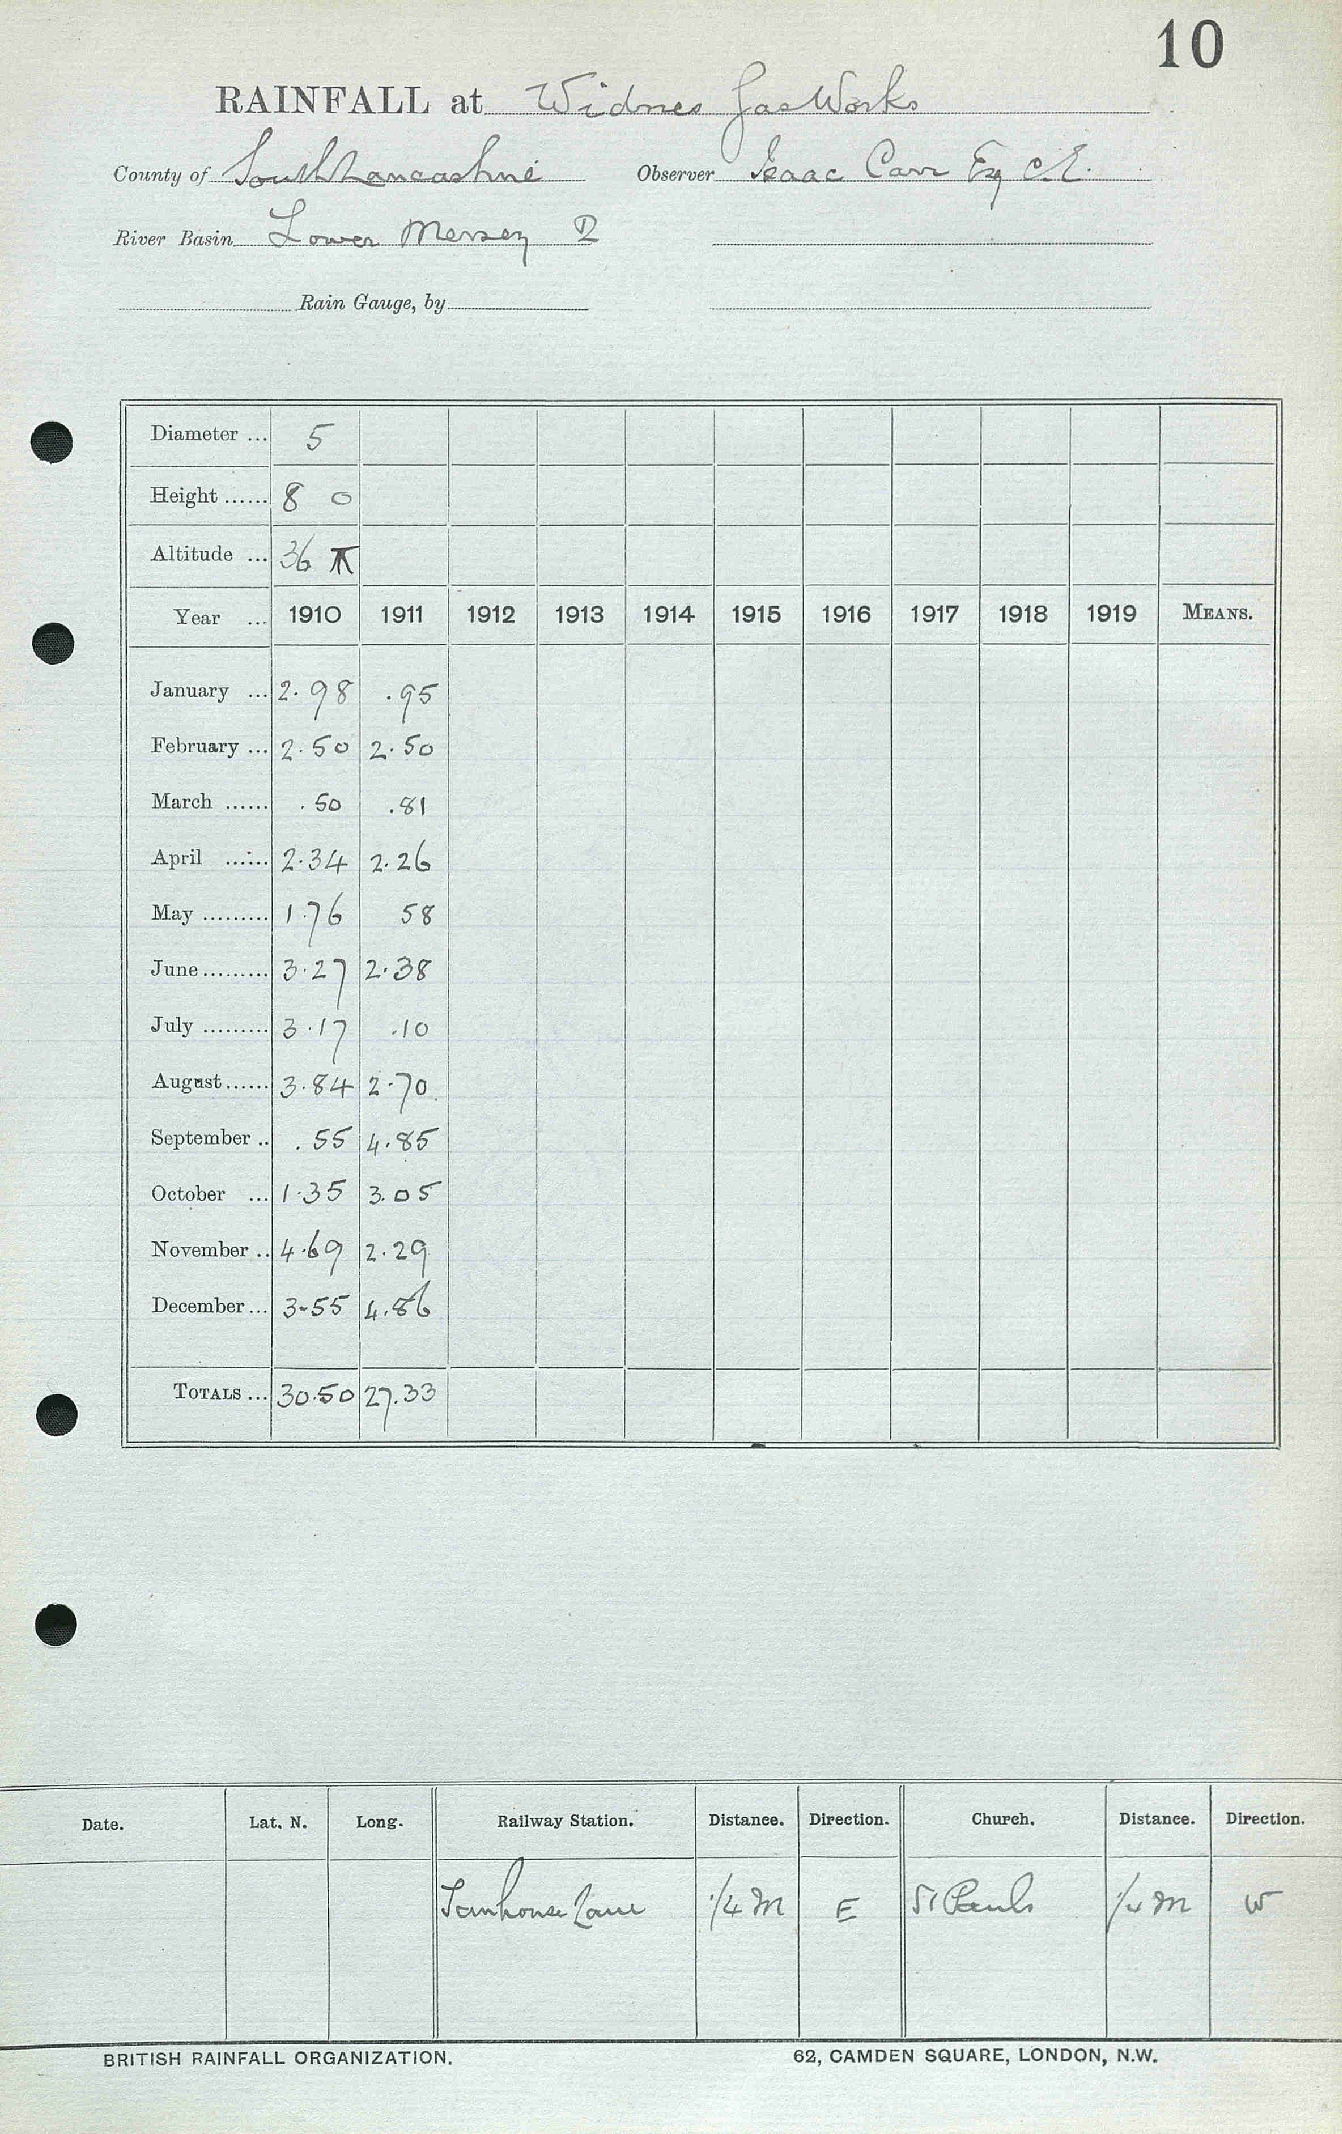 10
RAINFALL at Widnes Gas Works
County of South Lancashire Observer Isaac Carr Esq C.E.
River Basin Lower Mersey D
Rain Gauge, by
Diameter ... 5
Height ...... 8 0
Altitude ... 36
Year ... 1910 1911 1912 1913 1914 1915 1916 1917 1918 1919 MEANS.
January ... 2.98 .95
February ... 2.50 2.50
March ...... .50 .81
April ...... 2.34 2.26
May ......... 1.76 58
June ......... 3.27 2.38
July ......... 3.17 .10
August ...... 3.84 2.70
September .. .55 4.85
October ... 1.35 3.05
November .. 4.69 2.29
December ... 3.55 4.86
TOTALS ... 30.50 27.33
Date. Lat. N. Long. Railway Station. Distance. Direction. Church. Distance. Direction.
Tanhouse Lane 1/4 M E St Pauls 1/4 M W
BRITISH RAINFALL ORGANIZATION. 62, CAMDEN SQUARE, LONDON, N.W.